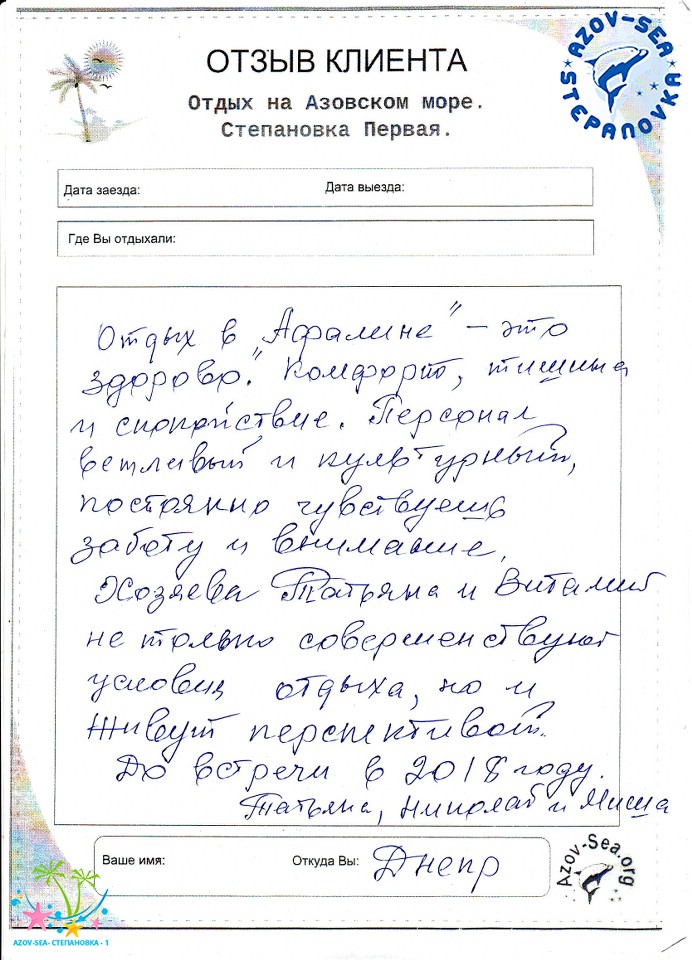 ОТЗЫВ КЛИЕНТА
Отдых на Азовском море.
Степановка Первая.
AZOV-SEA
STEPANOVKA
Дата заезда: Дата выезда:
Где Вы отдыхали:
Отдых в „Афалине" – это
здорово. Комфорт, тишина
и спокойствие. Персонал
ветливый и культурный,
постоянно чувствуешь
заботу и внимание.
Хозяева Татьяна и Виталий
не только совершенствуют
условия отдыха, но и
живут перспективой.
До встречи в 2018 году.
Татьяна, Николай и Миша
Ваше имя: Откуда Вы: Днепр
Azov-Sea.org
AZOV-SEA- СТЕПАНОВКА - 1